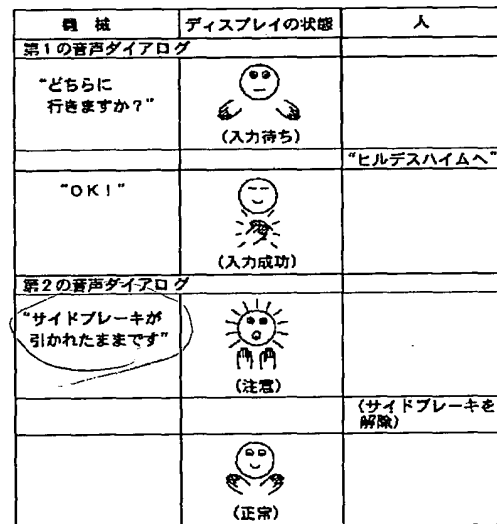 機械 ディスプレイの状態 人
第1の音声ダイアログ
“どちらに
行きますか？”
(入力待ち)
“ヒルデスハイムへ”
“OK！”
(入力成功)
第2の音声ダイアログ
“サイドブレーキが
引かれたままです”
(注意)
(サイドブレーキを
解除)
(正常)